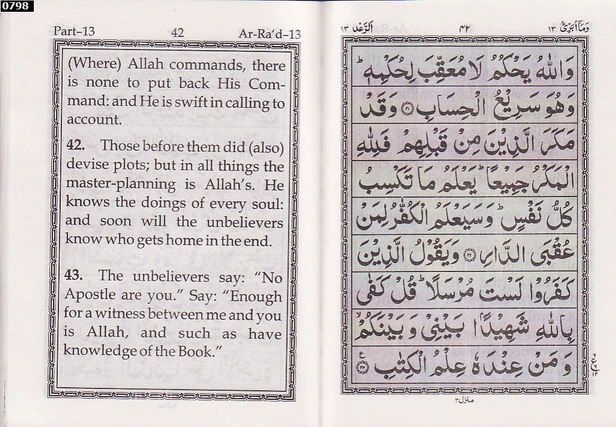 0798
Part–13 42 Ar-Ra’d–13
(Where) Allah commands, there
is none to put back His Com-
mand: and He is swift in calling to
account.
42. Those before them did (also)
devise plots; but in all things the
master-planning is Allah’s. He
knows the doings of every soul:
and soon will the unbelievers
know who gets home in the end.
43. The unbelievers say: “No
Apostle are you.” Say: “Enough
for a witness between me and you
is Allah, and such as have
knowledge of the Book.”
الرّعد ۱۳ ۴۲ وَمَآ اُبَرِّئُ ۱۳
وَاللّٰهُ يَحْكُمُ لَا مُعَقِّبَ لِحُكْمِهٖ ؕ
وَهُوَ سَرِيْعُ الْحِسَابِ ﴿۴۱﴾ وَقَدْ
مَكَرَ الَّذِيْنَ مِنْ قَبْلِهِمْ فَلِلّٰهِ
الْمَكْرُ جَمِيْعًا ؕ يَعْلَمُ مَا تَكْسِبُ
كُلُّ نَفْسٍ ؕ وَسَيَعْلَمُ الْكُفّٰرُ لِمَنْ
عُقْبَى الدَّارِ ﴿۴۲﴾ وَيَقُوْلُ الَّذِيْنَ
كَفَرُوْا لَسْتَ مُرْسَلًا ؕ قُلْ كَفٰى
بِاللّٰهِ شَهِيْدًۢا بَيْنِيْ وَبَيْنَكُمْ ۙ
وَ مَنْ عِنْدَهٗ عِلْمُ الْكِتٰبِ ﴿۴۳﴾
منزل ۳